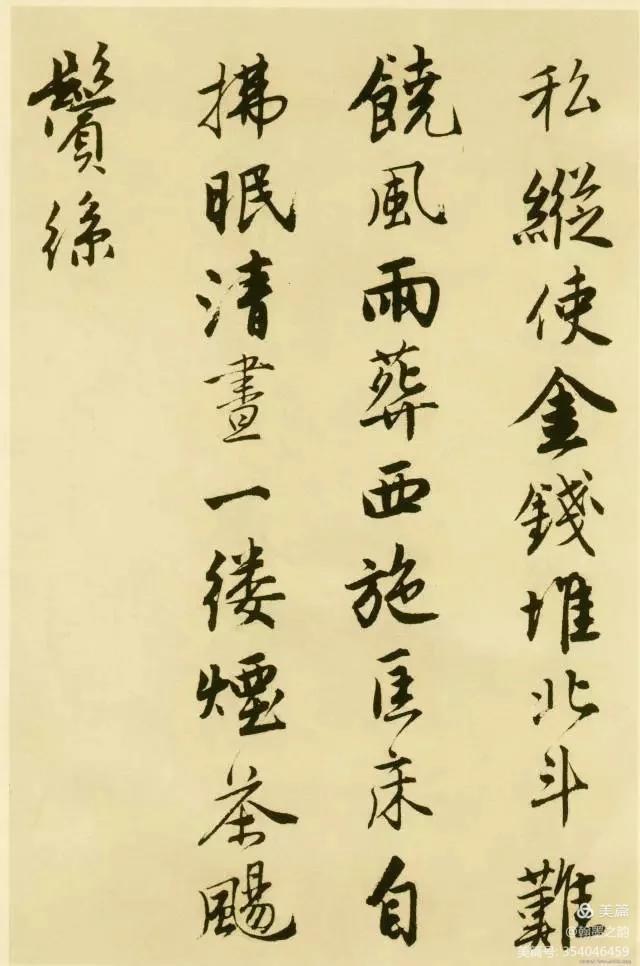 私縱使金錢堆北斗難
饒風雨葬西施匡床自
拂眠清晝一縷煙茶颺
鬢絲
美篇
美篇号: 354046459